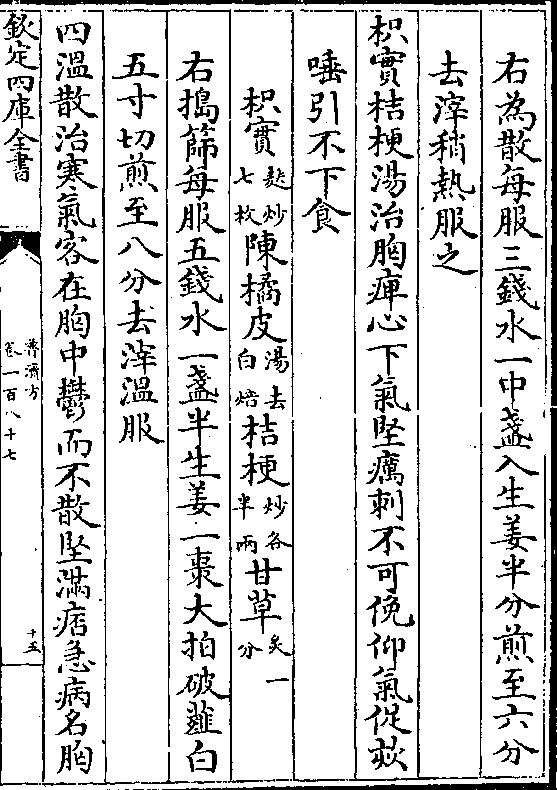 右為散每服三錢水一中盞入生姜半分煎至六分
去滓稍熱服之
枳實桔梗湯治胸痺心下氣堅癘刺不可俛仰氣促欬
唾引不下食
枳實麩炒七枚陳橘皮湯去白焙桔梗炒各半兩甘草炙一分
右搗篩每服五錢水一盞半生姜一棗大拍破薤白
五寸切煎至八分去滓溫服
四溫散治寒氣客在胸中鬱而不散堅滿痞急病名胸
欽定四庫全書
普濟方
卷一百八十七
十五